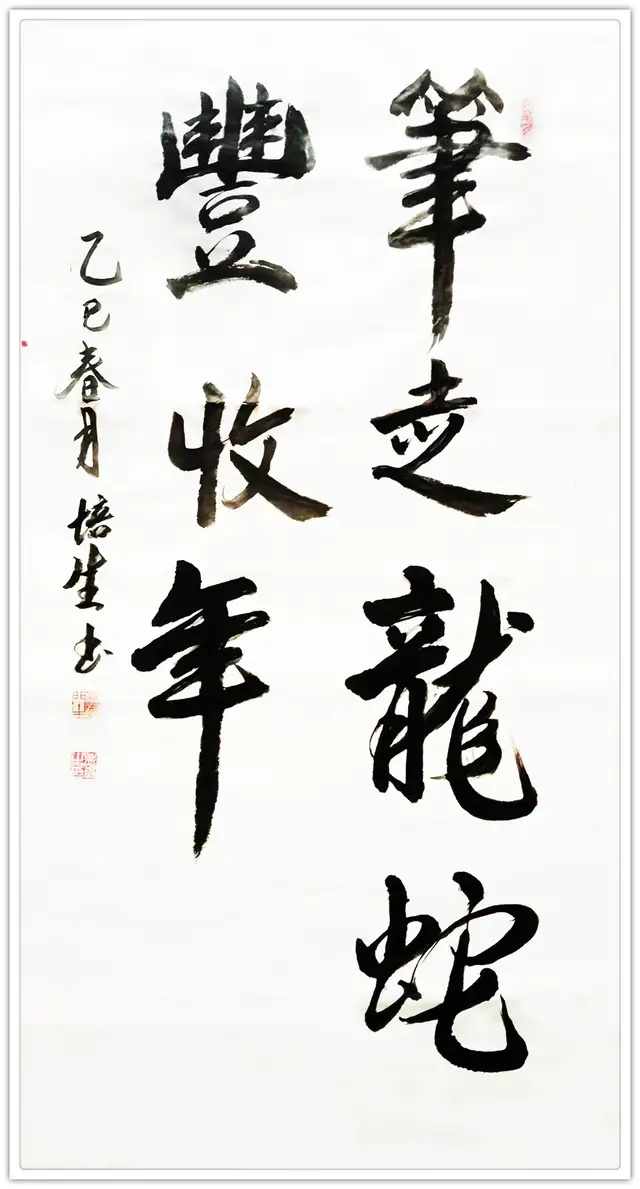 筆走龍蛇
豐收年
乙巳春月培生书